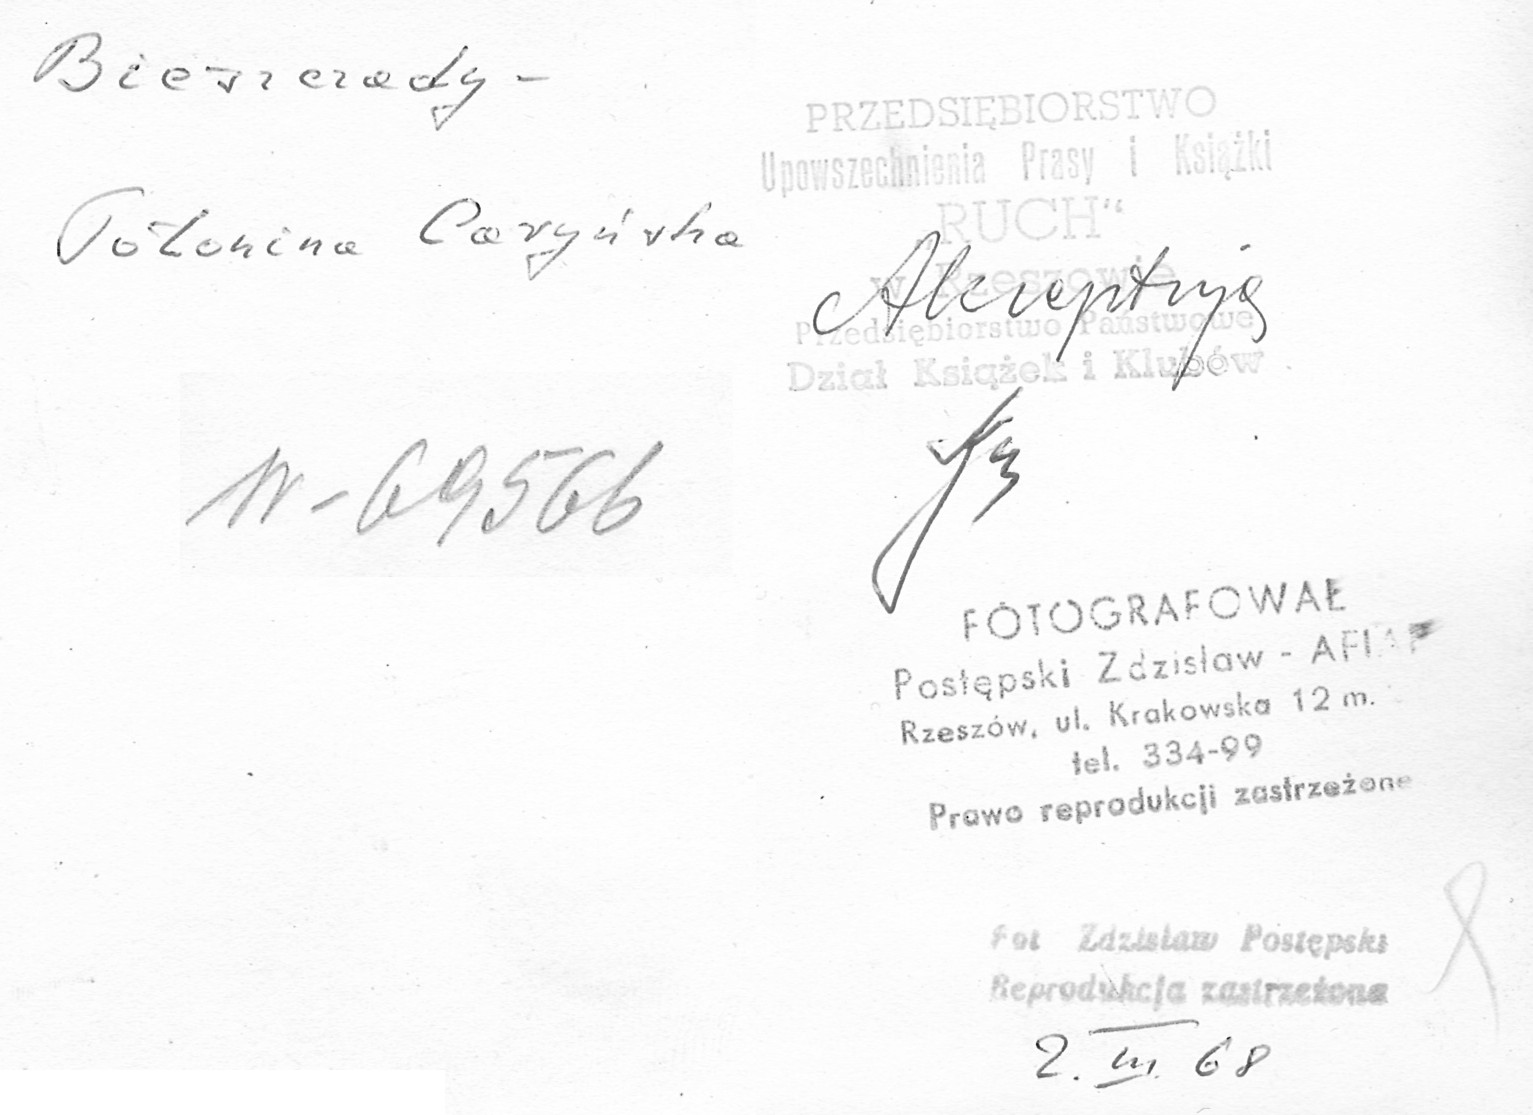 Bieszczady -
Połonina Caryńska
PRZEDSIĘBIORSTWO
Upowszechnienia Prasy i Książki
„RUCH“
w Rzeszowie
Przedsiębiorstwo Państwowe
Dział Książek i Klubów
Akceptuję
N-69566
FOTOGRAFOWAŁ
Postępski Zdzisław - AFIAP
Rzeszów, ul. Krakowska 12 m.
tel. 334-99
Prawo reprodukcji zastrzeżone
Fot Zdzisław Postępski
Reprodukcja zastrzeżona
2. III 68